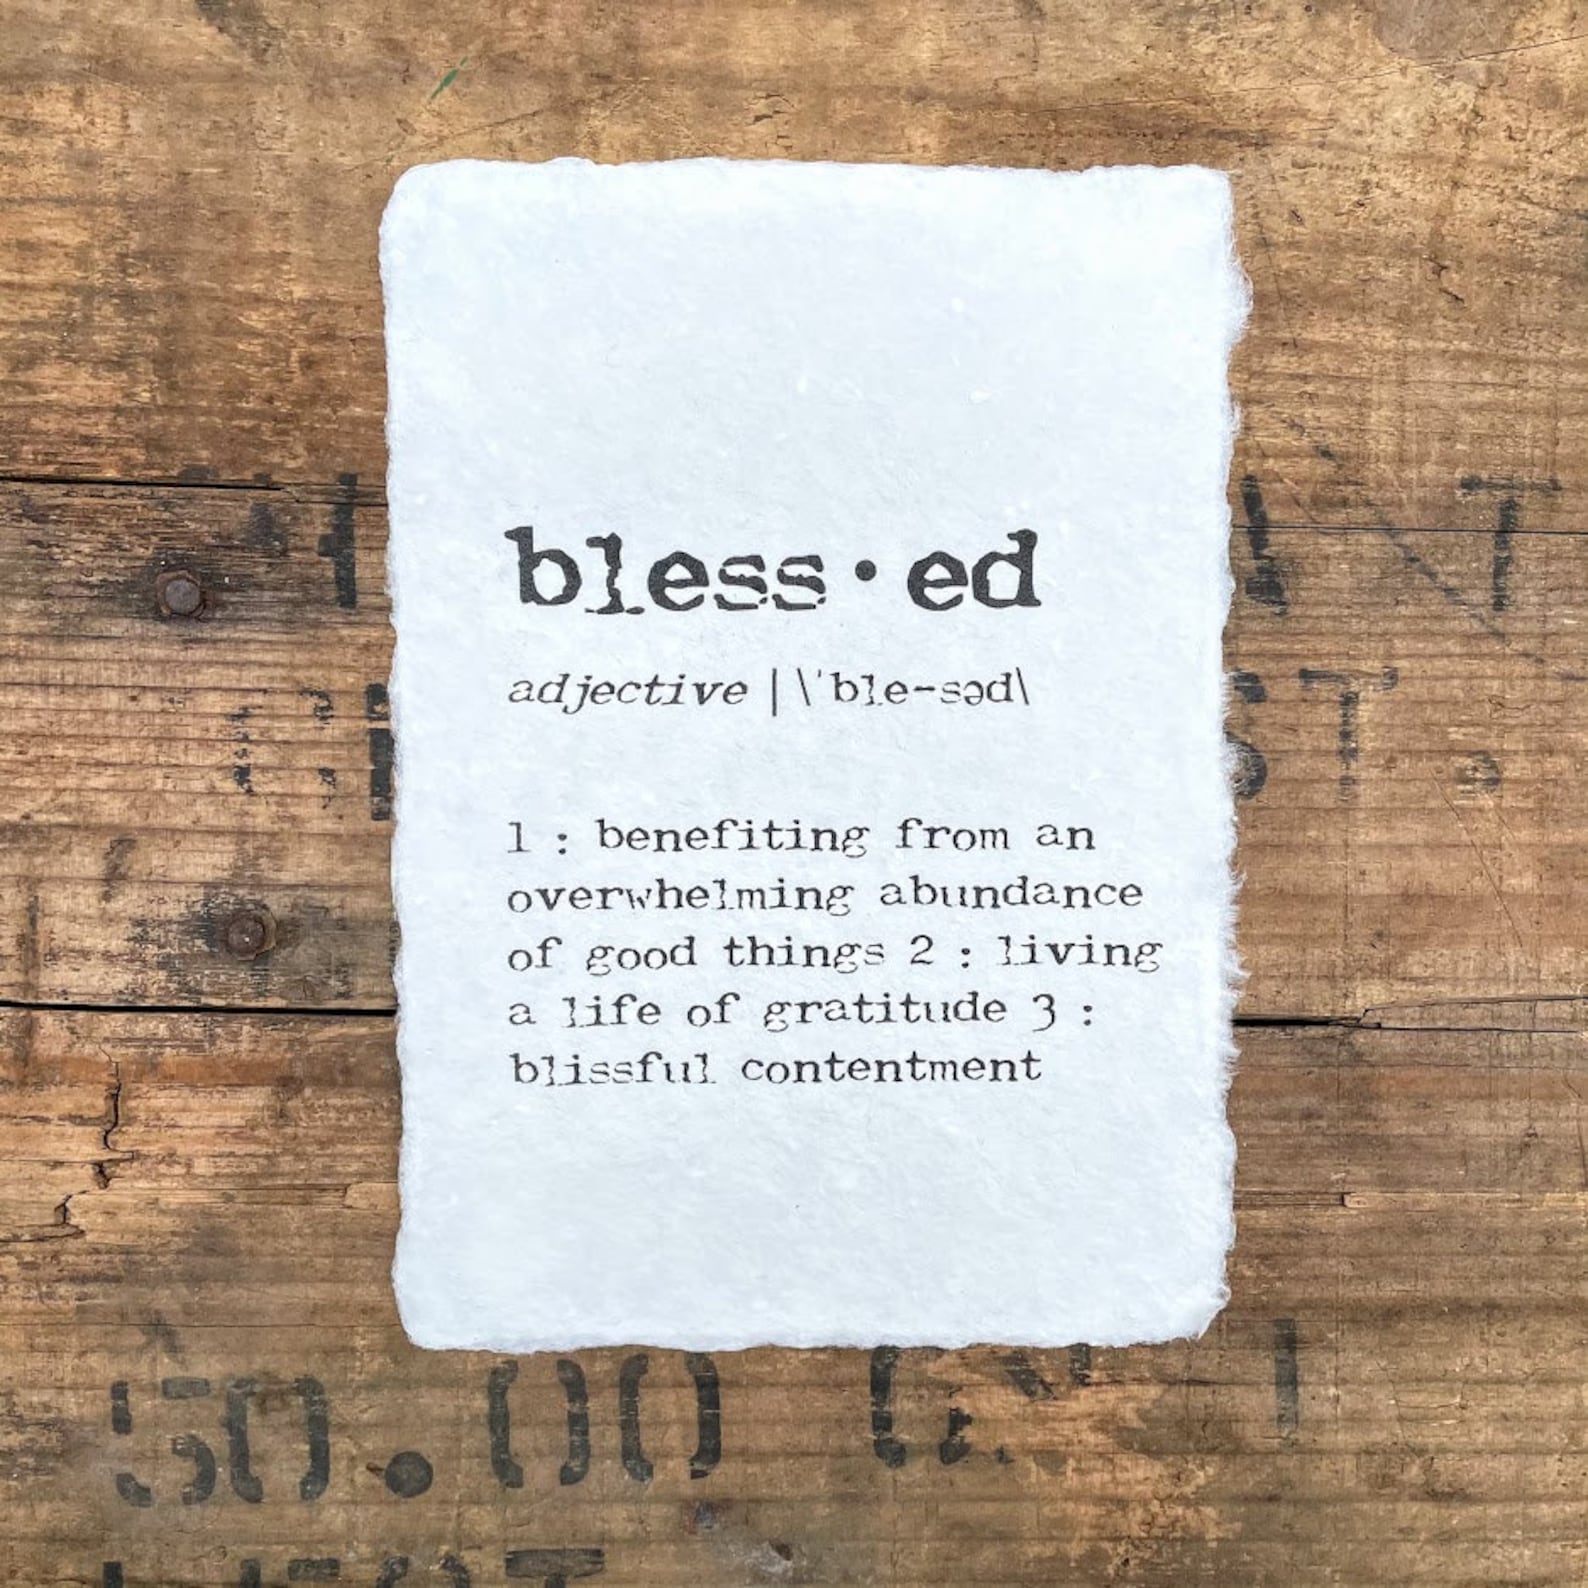 bless·ed
adjective | \ˈble-səd\
1 : benefiting from an
overwhelming abundance
of good things 2 : living
a life of gratitude 3 :
blissful contentment
50.00